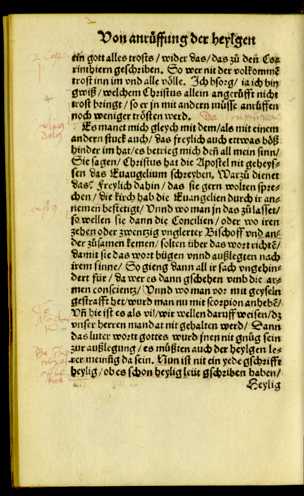 Von anrüffung der heylgen
ein gott alles trosts / wider das / das zu den Co⸗
rinthiern geschriben. So wer nit der volkommē
trost inn im vnd alle völle. Jch bsorg / ia ich bin
gwiß / welchem Christus allein angerüfft nicht
trost bringt / so er jn mit andern müsse anrüffen
noch weniger trösten werd.
Es manet mich gleych mit dem / als mit einem
andern stuck auch / das freylich auch etwao höß
hinder im hat / es betrieg mich deñ all mein sinn /
Sie sagen / Christus hat die Apostel nit geheys⸗
sen das Euangelium schreyben, Warzů dienet
das? Freylich dahin / das sie gern wolten spre⸗
chen / die kirch hab die Euangelien durch ir an⸗
nemen befestigt / Vnd wo man jn das zů lasset /
so wellen sie dann die Concilien / oder wo iren
zehen oder zwentzig vnglerter Bischoff vnd an⸗
der zůsamen kemen / solten über das wort richtē /
damit sie das wort bügen vnnd außlegten nach
irem sinne / So gieng dann all ir sach vngehin⸗
dert für / da wer es dann gschehen vmb die ar⸗
men conscientz / Vnnd wo man vor mit geyseln
gestrafft het / wurd man nu mit scorpion anhebē /
Vñ hie ist es als vil / wir wellen darauff weisen / dz
vnser herren mandat nit gehalten werd / Dann
das luter wortt gottes wurd jnen nit gnůg sein
zur außlegung / es müßten auch der heylgen le⸗
rer meinung da sein. Nun ist nit ein yede gschrifft
heylig / ob es schon heylig leüt gschriben haben /
Heylig